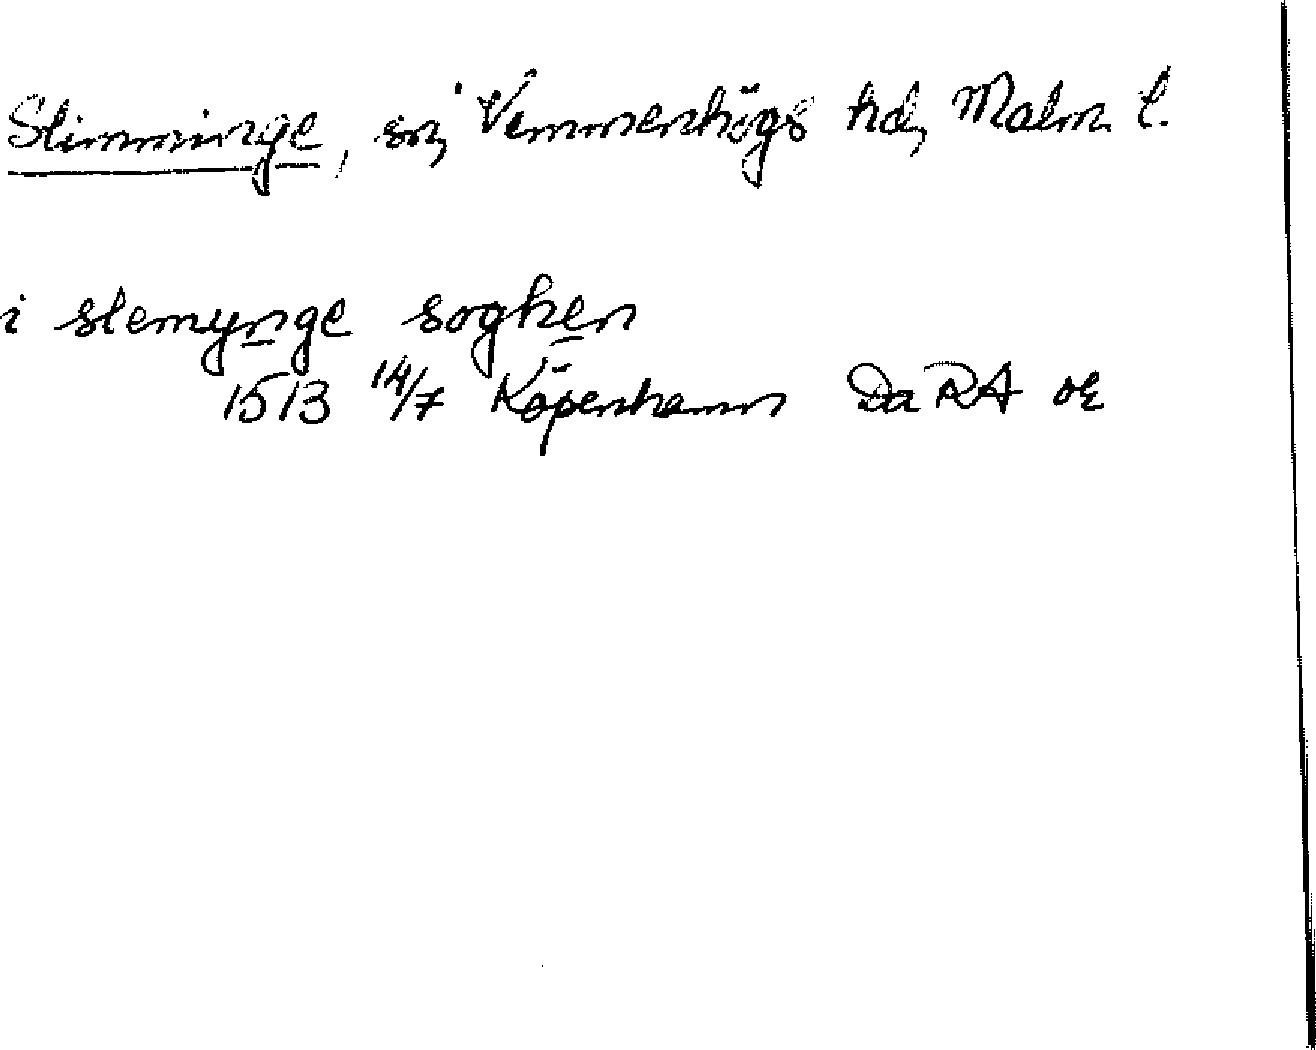 Slimminge, sn, Vemmenhögs hd, Malm. l.
i slemynge soghen
1513 14/7 Köpenhamn DaRA or